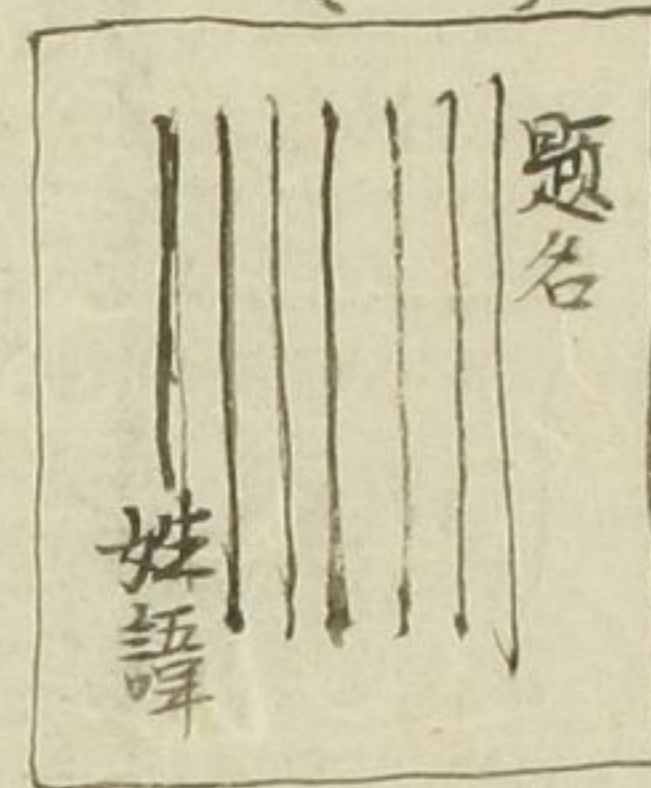 題名
姓諱